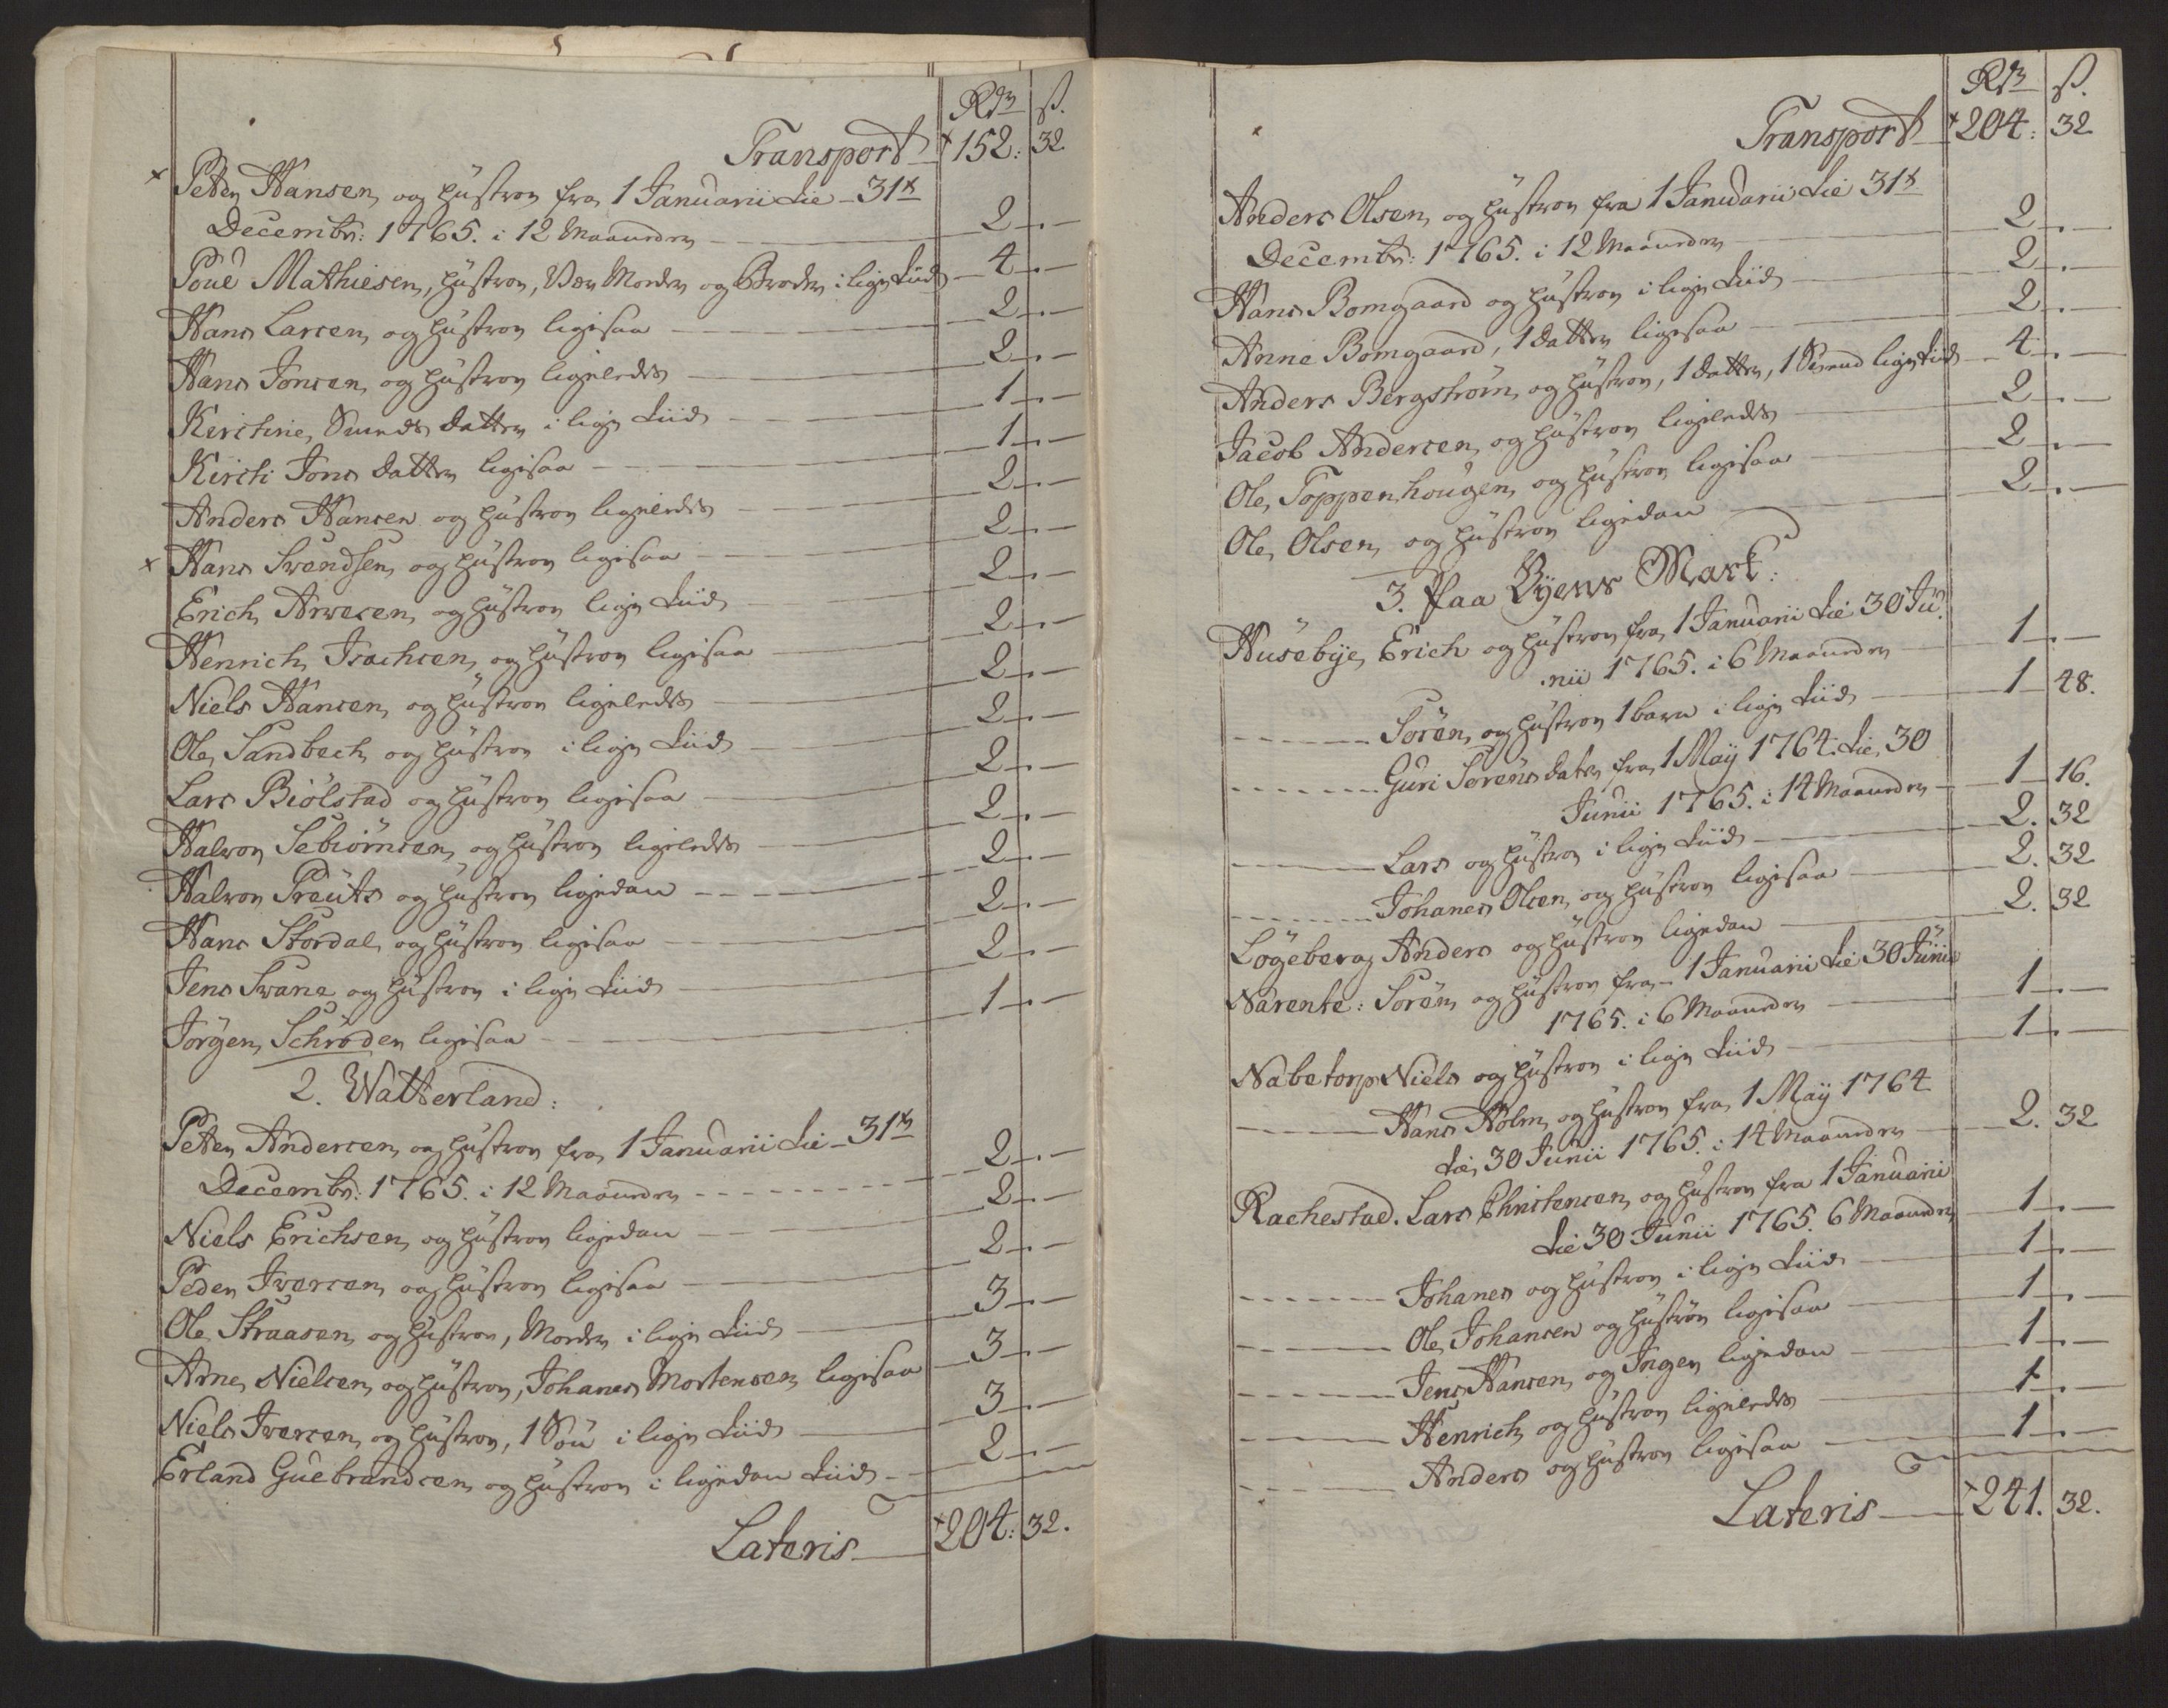 Rdr ß.
Transport 152: 32
Peter Hansen, og hustrou fra 1 Januarii til 31te
Decembr: 1765. i 12 Maaneder 2 . —
Poul Mathiesen, hustrou, Vær Moder og Broder i lige Tiid 4 . —
Hans Larsen, og hustrou ligesaa 2 . —
Hans Jonsen, og hustrou ligeledes 2 . —
Kirstine, Svends datter i lige Tiid 1 . —
Kirsti Jons datter ligesaa 1 . —
Anders Hansen og hustrou ligeledes 2 . —
Hans Svendsen, og hustrou ligesaa 2 . —
Erich Arvesen, og hustrou lige Tiid 2 . —
Henrich Isachsen, og hustrou ligesaa 2 . —
Niels Hansen, og hustrou ligeledes 2 . —
Ole Sandbech og hustrou i lige Tiid 2 . —
Lars Biölstad og hustrou ligesaa 2 . —
Halvor Sebiörnsen, og hustrou ligeledes 2 . —
Halvor Preuts og hustrou ligedan 2 . —
Hans Stordal, og hustrou ligesaa 2 . —
Jens Svane og hustrou i lige Tiid 2 . —
Jörgen Schröder ligesaa 1 . —
2. Watterland:
Peter Andersen, og hustrou fra 1 Januarii til 31te
Decembr: 1765. i 12 Maaneder 2 . —
Niels Erichsen, og hustrou ligedan 2 . —
Peder Iversen, og hustrou ligesaa 2 . —
Ole Straasen, og hustrou, Moder i lige Tiid 3 . —
Arne Nielsen, og hustrou, Johanes Mortensen ligesaa 3 . —
Niels Iversen, og hustrou, 1 Sön i lige Tiid 3 . —
Erland Guebrandsen, og hustrou i ligedan Tiid 2 . —
Lateris 204: 32.
Rdr ß.
Transport 204: 32
Anders Olsen, og hustrou fra 1 Januarii til 31te
Decembr: 1765. i 12 Maaneder 2 . —
Hans Bomgaard og hustrou i lige Tiid 2 . —
Anne Bomgaard, 1 datter ligesaa 2 . —
Anders Bergström, og hustrou, 1 datter, 1 Svend lige Tiid 4 . —
Jacob Andersen, og hustrou ligeledes 2 . —
Ole, Toppenhougen, og hustrou, ligesaa 2 . —
Ole, Olsen, og hustrou ligedan 2 . —
3. Paa Byens Mark:
Husebye, Erich og hustrou fra 1 Januarii til 30 Ju-
nii 1765. i 6 Maaneder 1 . —
Sören, og hustrou 1 barn i lige Tiid 1 48.
Guri Sörens dater fra 1 May 1764. til 30
Junii 1765. i 14 Maaneder 1 16.
Lars og hustrou i lige Tiid 2. 32
Johanes Olsen, og hustrou ligesaa 2. 32
Lögeberg Anders og hustrou ligedan 2. 32
Närente: Sören, og hustrou fra 1 Januarii til 30 Junii
1765. i 6 Maaneder 1 . —
Nabetorp Niels og hustrou i lige Tiid 1 . —
Hans Holm, og hustrou fra 1 May 1764
til 30 Junii 1765. i 14 Maaneder 2. 32
Rachestad. Lars Christensen, og hustrou fra 1 Januarii
til 30 Junii 1765. 6 Maaneder 1 . —
Johanes og hustrou i lige Tiid 1 . —
Ole Johansen og hustrou ligesaa 1 . —
Jens Hansen, og Inger ligedan 1 . —
Henrich og hustrou ligeledes 1 . —
Anders og hustrou ligesaa 1 . —
Lateris 241. 32.